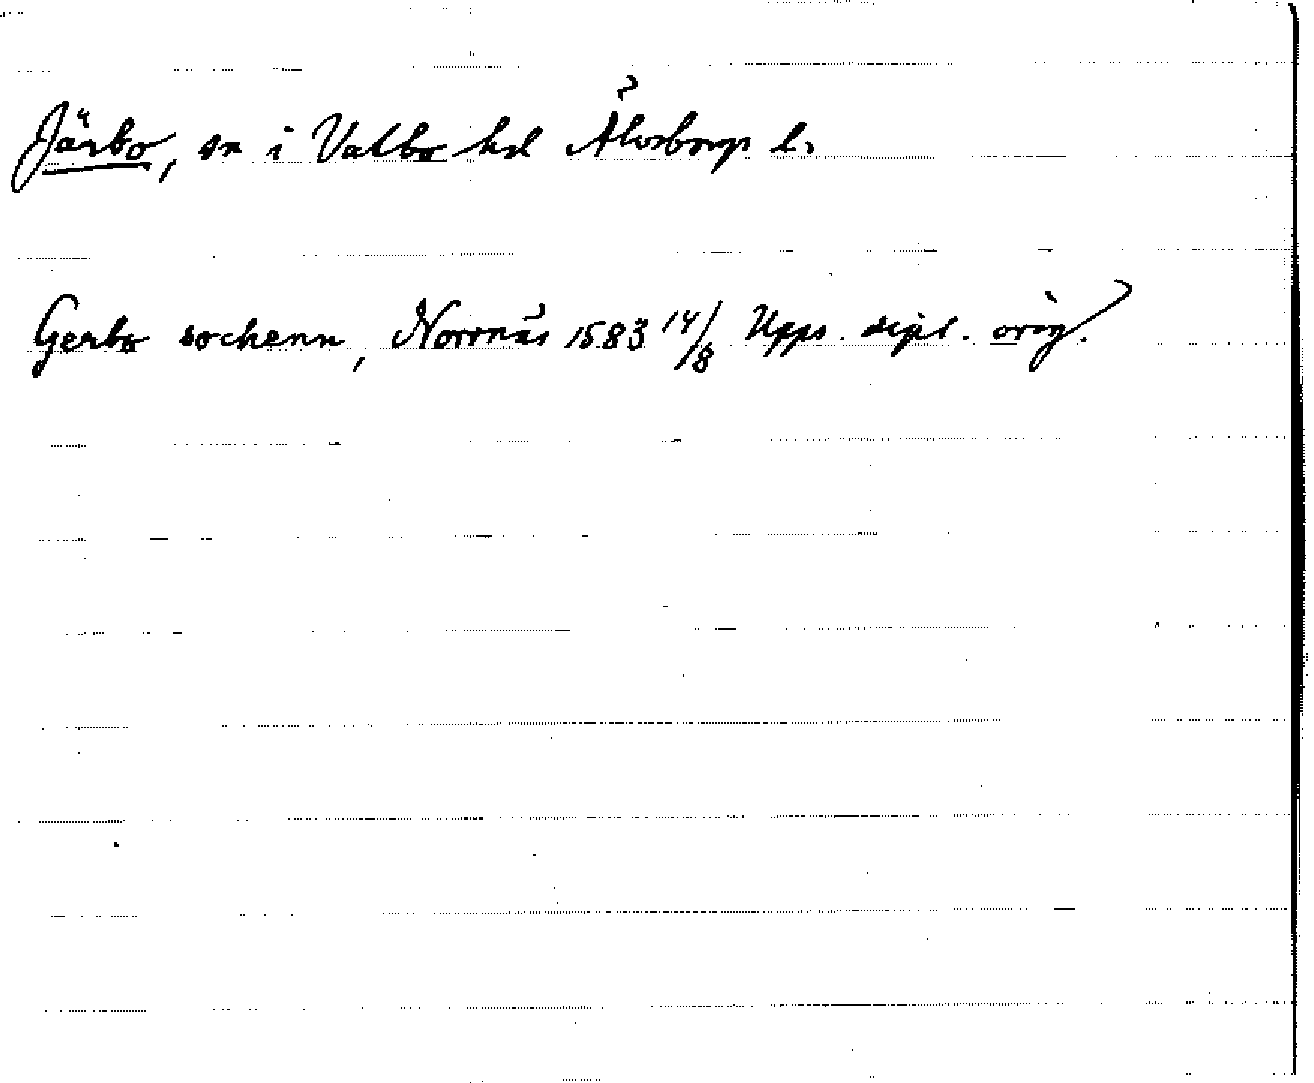 Järbo, sn i Valbo hd Älvsborgs l.
Gerbo sochenn, Norrnäs 1583 14/8 Upps. dipl. orig.